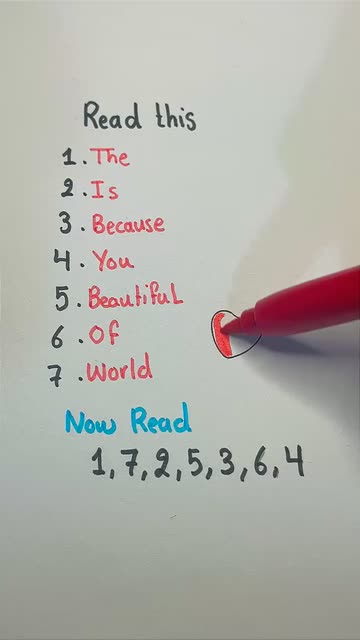 Read this
1. The
2. Is
3. Because
4. You
5. Beautiful
6. Of
7. World
Now Read
1,7,2,5,3,6,4